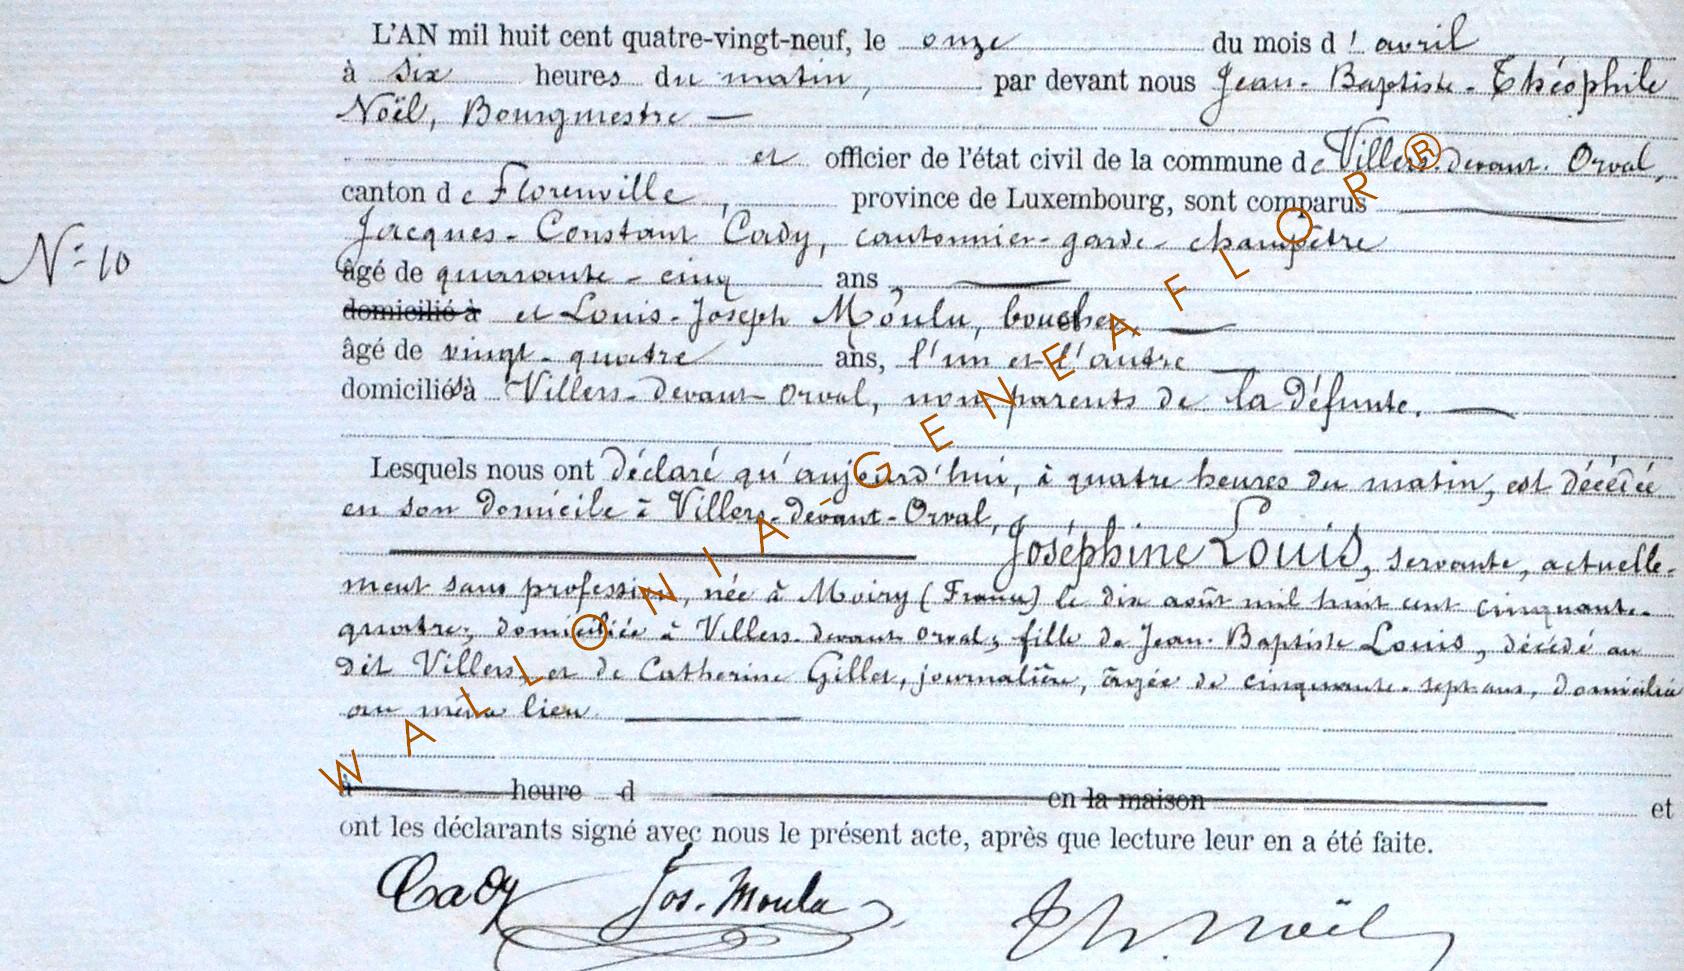 L'AN mil huit cent quatre-vingt-neuf, le onze du mois d'avril
à six heures du matin, par devant nous Jean-Baptiste-Théophile
Noël, Bourgmestre —
et officier de l'état civil de la commune de Villers-devant-Orval,
canton de Florenville, province de Luxembourg, sont comparus
Jacques-Constant Cady, cantonnier-garde-champêtre
N° 10
âgé de quarante-cinq ans,
domicilié à et Louis-Joseph Moulu, boucher,
âgé de vingt-quatre ans, l'un et l'autre
domiciliés à Villers-devant-Orval, non parents de la défunte.
Lesquels nous ont déclaré qu'aujourd'hui, à quatre heures du matin, est décédée
en son domicile à Villers-devant-Orval,
Joséphine Louis, servante, actuelle-
ment sans profession, née à Moiry (France) le dix août mil huit cent cinquante-
quatre, domiciliée à Villers-devant-Orval; fille de Jean-Baptiste Louis, décédé au
dit Villers, et de Catherine Gillet, journalière, âgée de cinquante-sept ans, domiciliée
au même lieu.
à heure d en la maison et
ont les déclarants signé avec nous le présent acte, après que lecture leur en a été faite.
Cady Jos. Moulu Th. Noël
WALLONIA-GENEAFLOR®